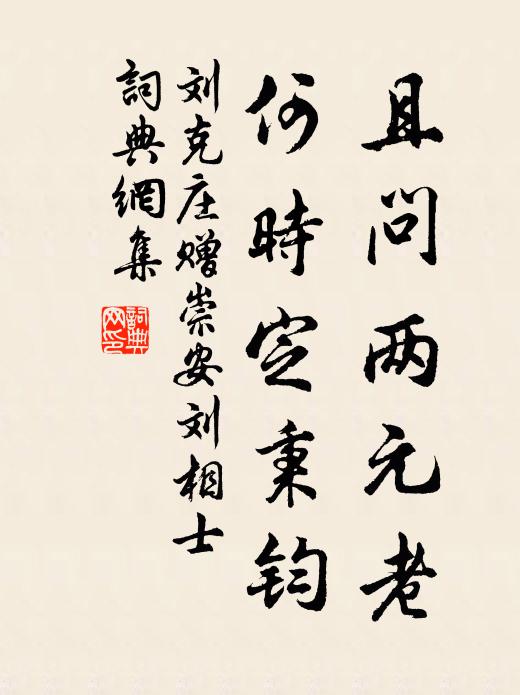 且问两元老
何時定秉钧
刘克庄赠崇安刘相士
詞典網集
詞典
网印